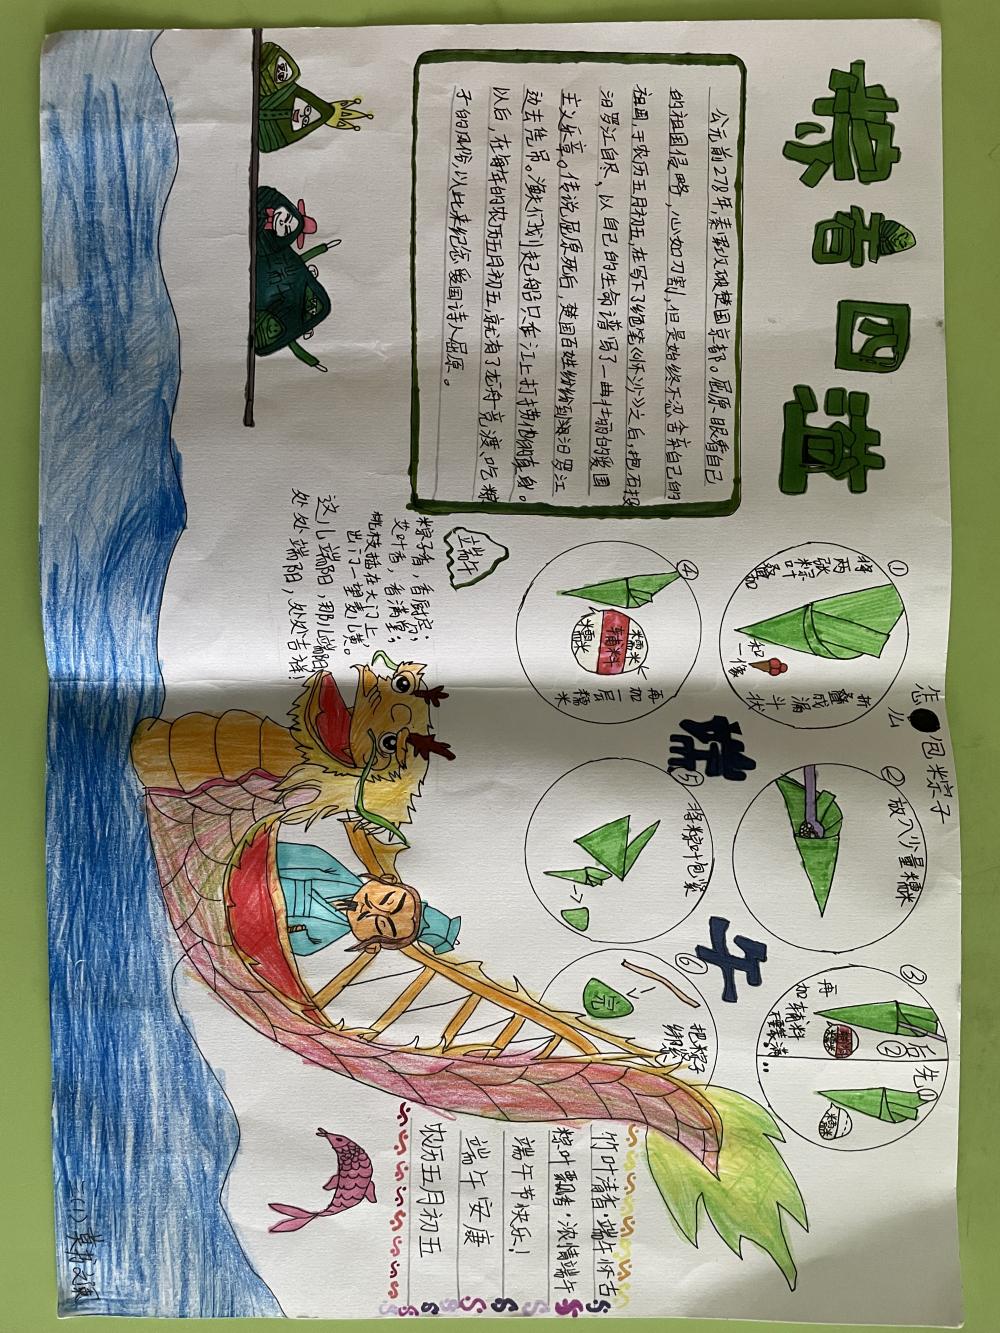 粽香四溢
公元前278年,秦军攻破楚国京都。屈原眼看自己
的祖国侵略,心如刀割,但是始终不忍舍弃自己的
祖国,于农历五月初五,在写下了绝笔《怀沙》之后,抱石投
汨罗江自尽,以自己的生命谱写了一曲壮丽的爱国
主义乐章。传说屈原死后,楚国百姓纷纷到汨罗江
动去凭吊。渔夫们划起船只在江上打捞他的真身。
以后,在每年的农历五月初五,就有了龙舟竞渡、吃粽
子的风俗,以此来纪念爱国诗人屈原。
端午
粽子香,香厨房;
艾叶香,香满堂;
桃枝插在大门上,
出门一望麦儿黄。
这儿端阳,那儿端阳,
处处端阳,处处吉祥!
怎么包粽子
①
将两张粽叶叠加
折叠成漏斗状
和一像
②放入少量糯米
③
先①
后②
再加辅料
糯米
④
再加一层糯米
糯米
辅料
糯米
⑤将粽叶包紧
⑥
把粽子绑紧
完
端午
竹叶清香·端午怀古
粽叶飘香·浓情端午
端午节快乐!
端午安康
农历五月初五
二(1)